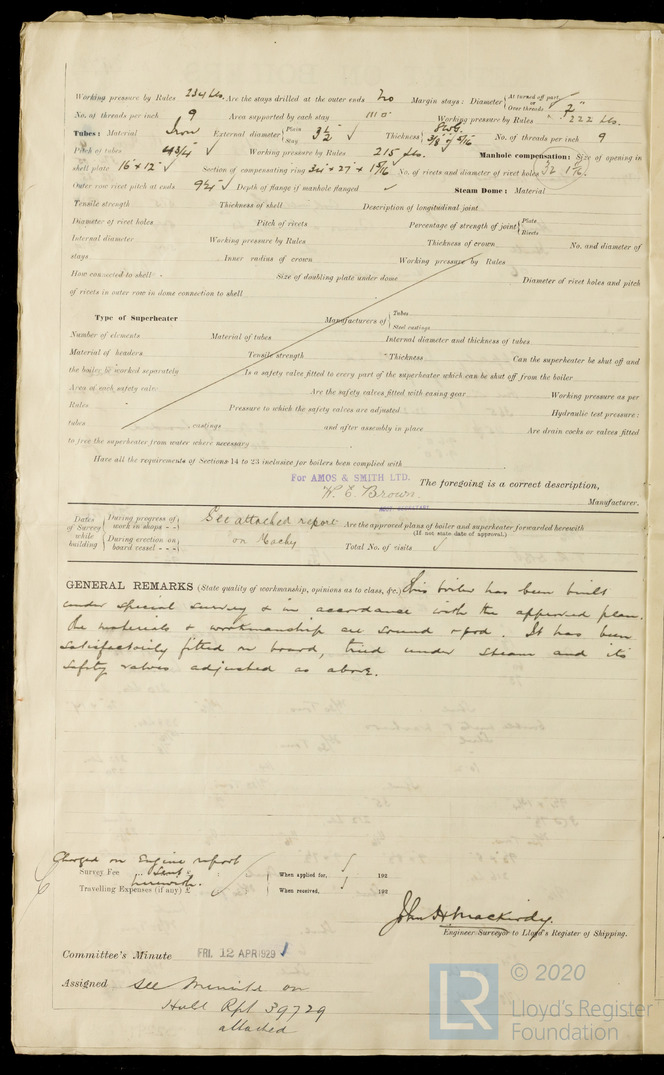 Working pressure by Rules 234 lbs. Are the stays drilled at the outer ends No Margin stays: Diameter { At turned off part, or Over threads 2"
No. of threads per inch 9 Area supported by each stay Working pressure by Rules 222 lbs.
Tubes: Material Iron External diameter { Plain Stay 3 1/2 Thickness { 8WG. 3/8 & 5/16 No. of threads per inch 9
Pitch of tubes Working pressure by Rules 215 lbs. Manhole compensation: Size of opening in
shell plate 16" x 12" Section of compensating ring No. of rivets and diameter of rivet holes 32
Outer row rivet pitch at ends Depth of flange if manhole flanged Steam Dome: Material
Tensile strength Thickness of shell Description of longitudinal joint
Diameter of rivet holes Pitch of rivets Percentage of strength of joint { Plate Rivets
Internal diameter Working pressure by Rules Thickness of crown No. and diameter of
stays Inner radius of crown Working pressure by Rules
How connected to shell Size of doubling plate under dome Diameter of rivet holes and pitch
of rivets in outer row in dome connection to shell
Type of Superheater Manufacturers of { Tubes Steel castings
Number of elements Material of tubes Internal diameter and thickness of tubes
Material of headers Tensile strength Thickness Can the superheater be shut off and
the boiler be worked separately Is a safety valve fitted to every part of the superheater which can be shut off from the boiler
Area of each safety valve Are the safety valves fitted with easing gear Working pressure as per
Rules Pressure to which the safety valves are adjusted Hydraulic test pressure:
tubes castings and after assembly in place Are drain cocks or valves fitted
to free the superheater from water where necessary
Have all the requirements of Sections 14 to 23 inclusive for boilers been complied with
For AMOS & SMITH LTD. The foregoing is a correct description,
W. E. Brown Manufacturer.
Dates of Survey while building { During progress of work in shops - - During erection on board vessel - - -
See attached report on Machy
Are the approved plans of boiler and superheater forwarded herewith
(If not state date of approval.)
Total No. of visits
GENERAL REMARKS (State quality of workmanship, opinions as to class, &c.) This boiler has been built
under special survey & in accordance with the approved plan.
The materials & workmanship are sound & good. It has been
satisfactorily fitted on board, tried under steam and its
safety valves adjusted as above.
Charged on Engine report
Survey Fee ... £ When applied for, 192
herewith.
Travelling Expenses (if any) £ When received, 192
John H Mackirdy.
Engineer Surveyor to Lloyd's Register of Shipping.
Committee's Minute FRI. 12 APR 1929
Assigned See Minute on
Hull Rpt 39729
attached
© 2020
LR Lloyd's Register
Foundation